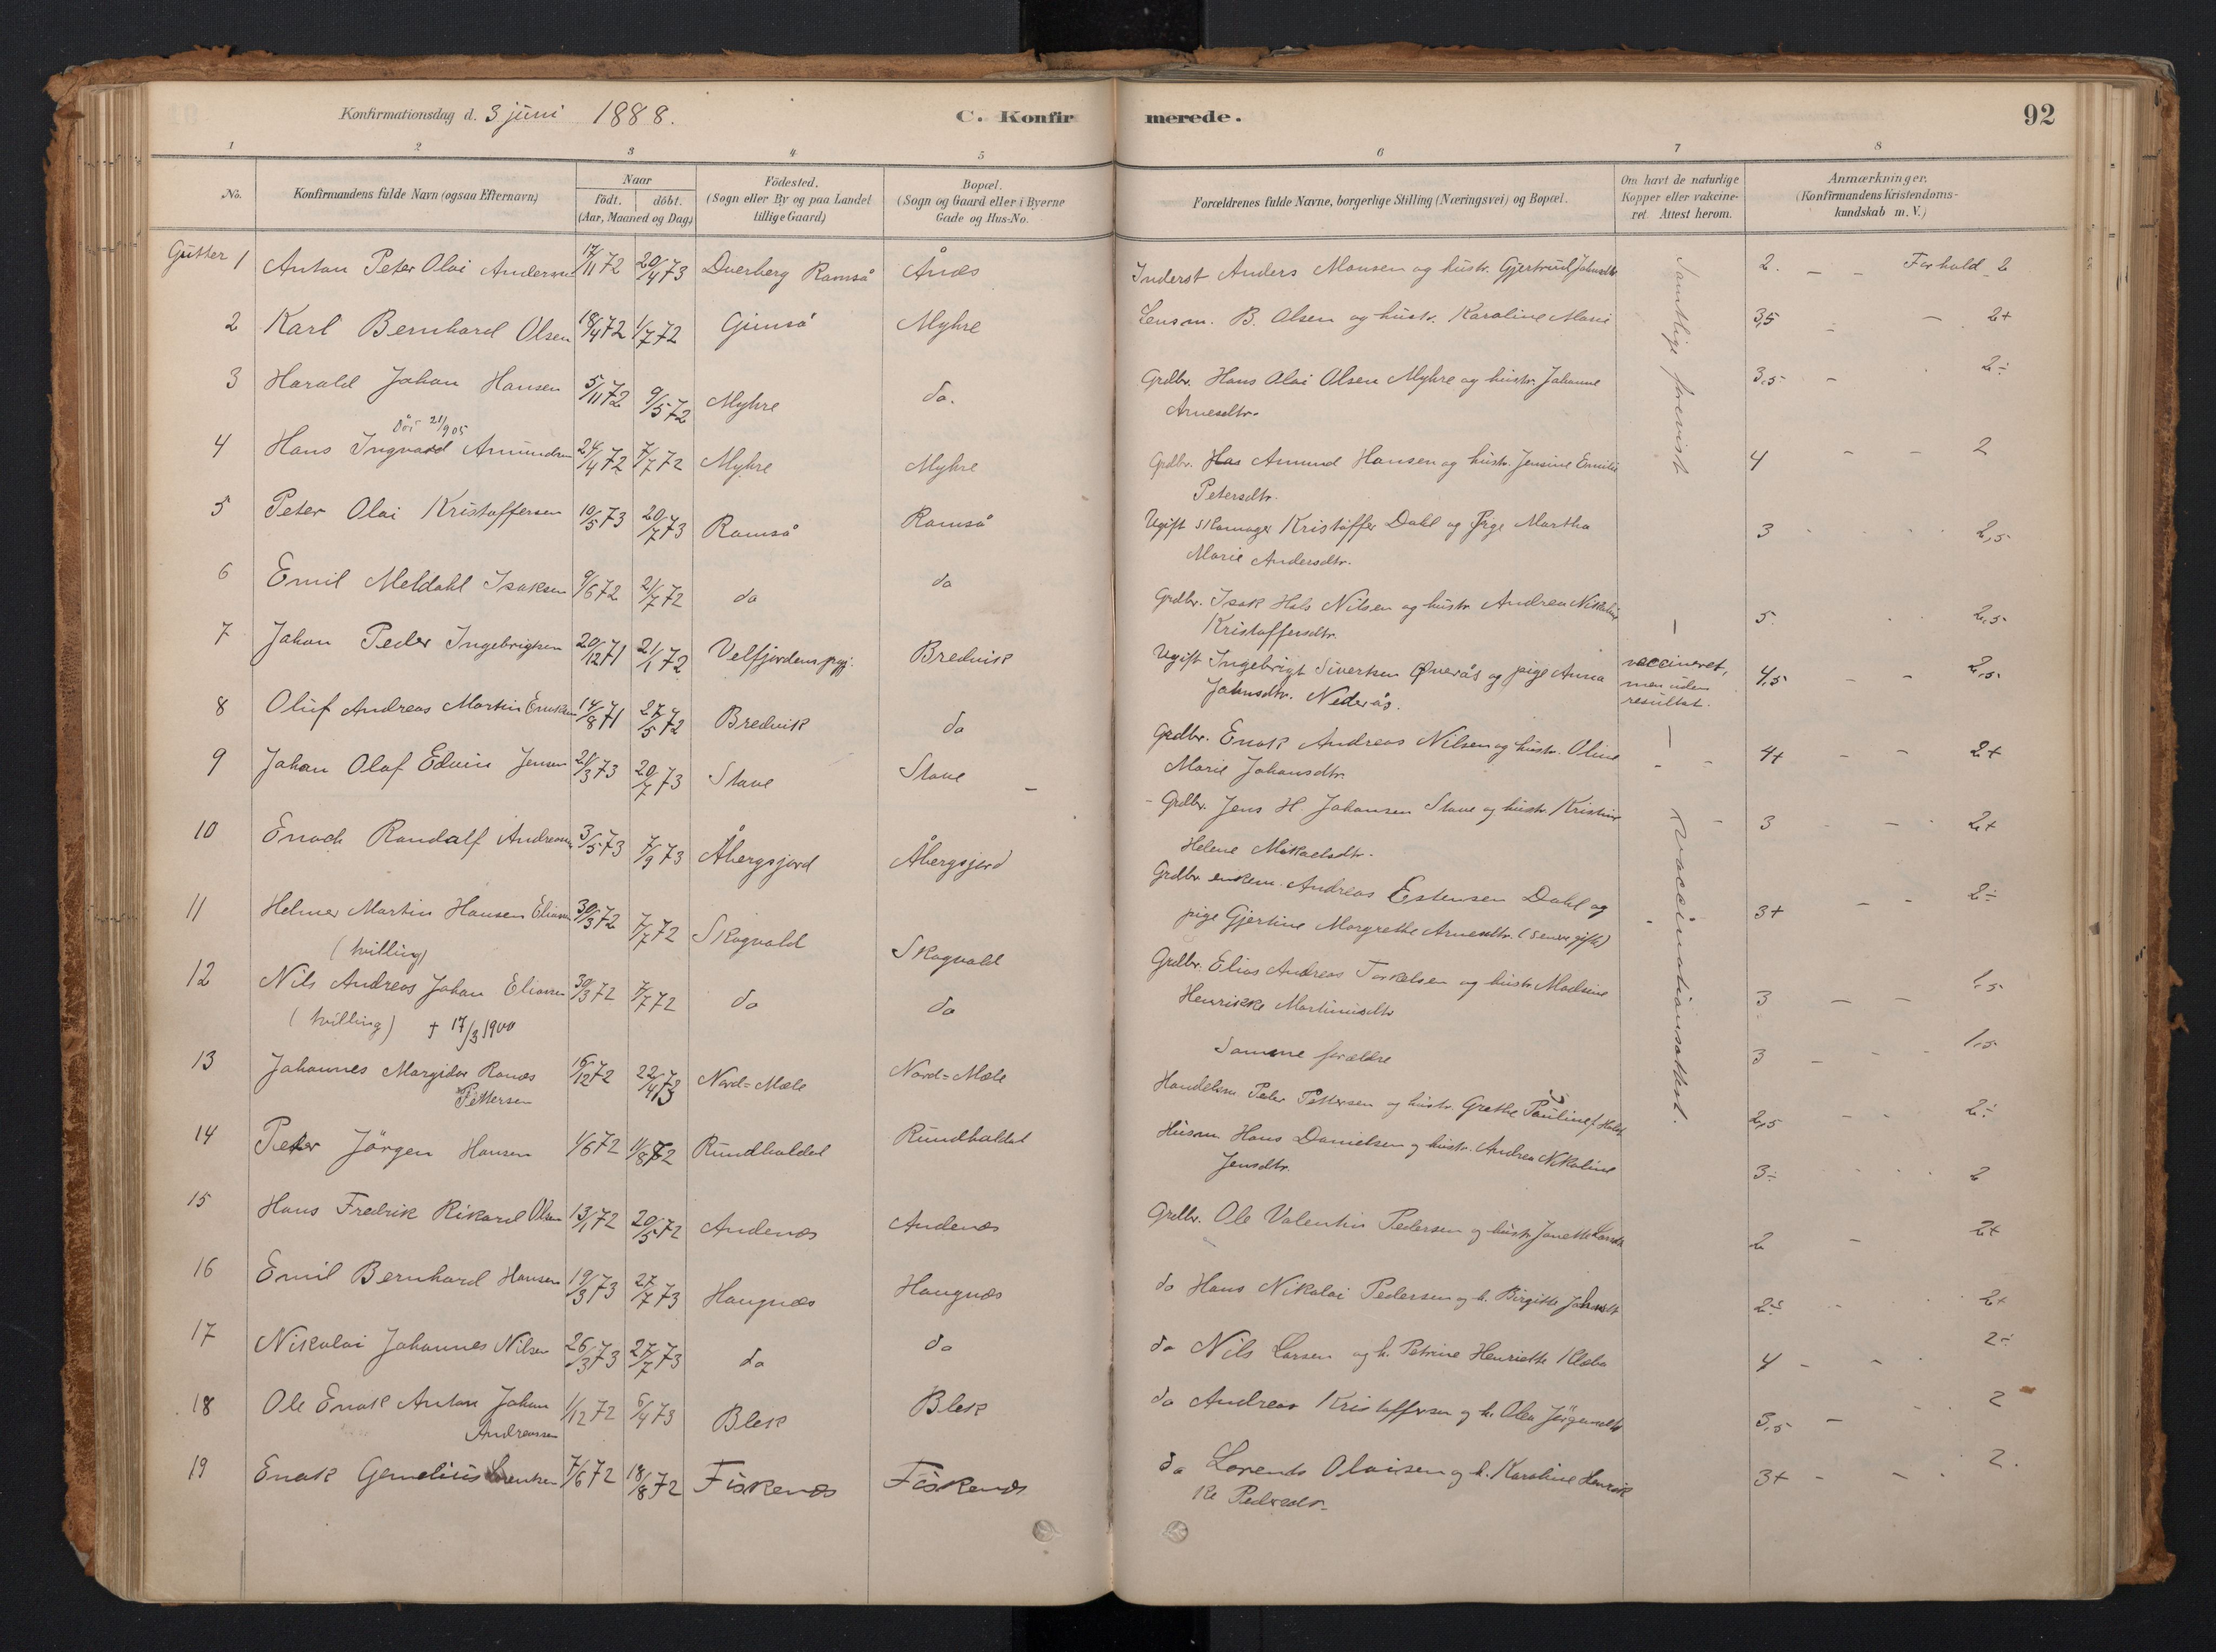 Konfirmationsdag d. 3 juni 1888.
C. Konfirmerede.
92
1 2 3 4 5 6 7 8
No.
Konfirmandens fulde Navn (ogsaa Efternavn)
Naar
født. døbt.
(Aar, Maaned og Dag)
Födested.
(Sogn eller By og paa Landet
tillige Gaard)
Bopæl.
(Sogn og Gaard eller i Byerne
Gade og Hus-No.
Forældrenes fulde Navne, borgerlige Stilling (Næringsvei) og Bopæl.
Om havt de naturlige
Kopper eller vakcine-
ret. Attest herom.
Anmærkninger.
(Konfirmandens Kristendoms-
kundskab m. V.)
Gutter 1 Anton Peter Olai Andersen 17/11 72 20/4 73 Dverberg Ramså Ånæs Inderst Anders Monsen og hustr. Gjertrud Johnsdtr. 2. - - Forhold 2
2 Karl Bernhard Olsen 18/4 72 1/7 72 Gimsö Myhre Lensm. B. Olsen og hustr. Karoline Marie 3,5 - - 2+
3 Harald Johan Hansen 5/11 72 9/5 72 Myhre do. Grdbr. Hans Olai Olsen Myhre og hustr. Johanne
Arnesdtr. 3,5 - 2÷
Döi 21/9 05
4 Hans Ingvald Amundsen 24/4 72 7/7 72 Myhre Myhre Grdbr. Has Amund Hansen og hustr. Jensine Emilie
Petersdtr. 4 - - 2
5 Peter Olai Kristoffersen 10/5 73 20/7 73 Ramså Ramså Ugift Skomager Kristoffer Dahl og Pige Martha
Marie Andersdtr. 3 2,5
6 Emil Meldahl Isaksen 9/6 72 21/7 72 do do Grdbr. Isak Hals Nilsen og hustr. Andrea Nikoline
Kristoffersdtr. - 5 2,5
7 Johan Peder Ingebrigtsen 20/12 71 21/1 72 Velfjordens prgj. Bredvik Ugift Ingebrigt Sivertsen Överås og pige Anna
Johnsdtr. Nederås. vaccineret,
men uden
resultat. 4,5 - - 2,5
8 Oluf Andreas Martin Enoksen 14/8 71 27/5 72 Bredvik do Grdbr. Enok Andreas Nilsen og hustr. Oline
Marie Johansdtr. 4+ - - 2+
9 Johan Olaf Edvin Jensen 21/3 73 20/7 73 Stave Stave Grdbr. Jens H. Johansen Stave og hustr. Kristine
Helene Mikaelsdtr. 3 - - 2+
10 Enoch Randalf Andreassen 3/5 73 7/9 73 Åbergsjord Åbergsjord Grdbr. enkem. Andreas Estensen Dahl og
pige Gjertine Margrethe Arnesdtr. (senere gifte) 3+ - - 2÷
11 Helmer Martin Hansen Eliassen 30/3 72 7/7 72 Skogvold Skogvold Grdbr. Elias Andreas Torkelsen og hustr. Madsine
(tvilling) Henrikke Martinusdtr 3 - - 1,5
12 Nils Andreas Johan Eliassen 30/3 72 7/7 72 do do Samme forældre 3 - - 1,5
(tvilling) † 17/3 1900
13 Johannes Margidor Ranæs 16/12 72 22/4 73 Nord=Mæle Nord=Mæle Handelsm Peder Pettersen og hustr. Grethe Pauline f. Holst 2,5 - - 2÷
Pettersen
14 Peter Jörgen Hansen 1/6 72 11/8 72 Rundholdet Rundholdet Husm Hans Danielsen og hustr. Andrea Nikoline
Jensdtr. 3÷ 2
15 Hans Fredrik Rikard Olsen 13/1 72 20/5 72 Andenæs Andenæs Grdbr. Ole Valentin Pedersen og hustr. Janette 2 - 2+
16 Emil Bernhard Hansen 19/3 73 27/7 73 Haugnæs Haugnæs do Hans Nikolai Pedersen og h. Birgitte 2÷ 2+
17 Nikolai Johannes Nilsen 26/3 73 27/7 73 do do do Nils Larsen og h. Petrine Henriette Klæbo 4 - - 2÷
18 Ole Enok Anton Johan 1/12 72 6/4 73 Blek Blek do Andreas Kristoffersen og h. Olea Jörgensdtr 3,5 - 2
Andreassen
19 Enok Gemelius Lorentsen 7/6 72 18/8 72 Fiskenæs Fiskenæs do Lorents Olaisen og h. Karoline Henrik
ke Pedersdtr. 3+ - - 2.
Samtlige forevist
Vaccinationsattest.